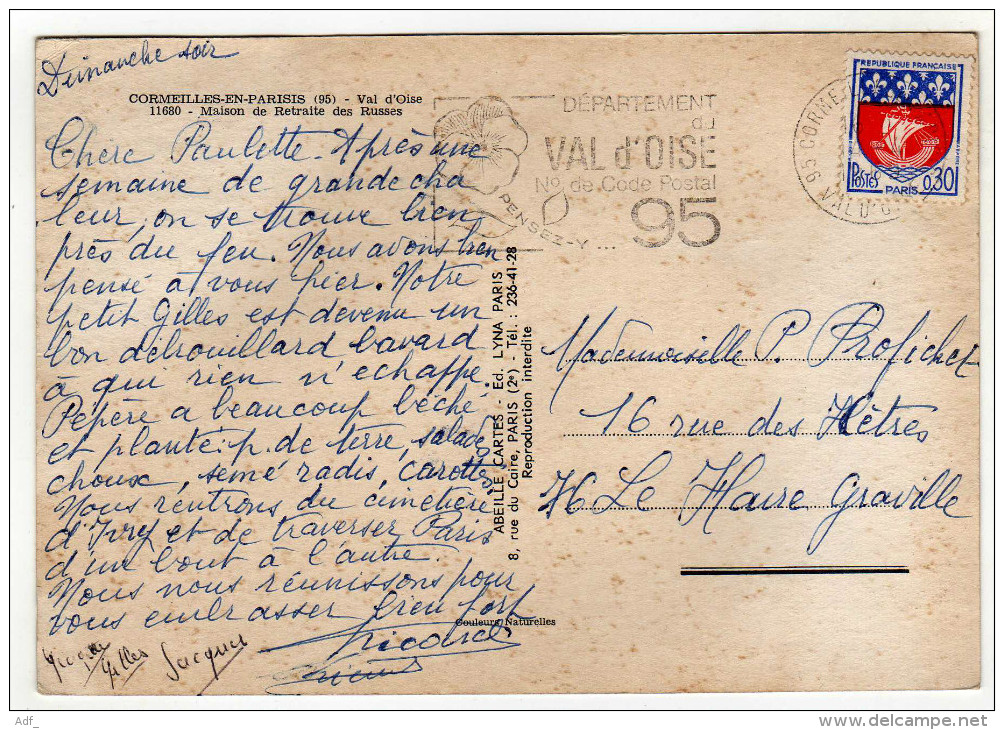 Dimanche soir
CORMEILLES-EN-PARISIS (95) - Val d'Oise
11680 - Maison de Retraite des Russes
Chere Paulette. Après une
semaine de grande cha
leur, on se trouve bien
près du feu. Nous avons bien
pensé à vous hier. Notre
petit Gilles est devenu un
bon débrouillard bavard
à qui rien n'échappe.
Pépère a beaucoup béché
et planté: p. de terre, salades
choux, semé radis, carottes
Nous rentrons du cimetière
d'Ivry et de traverser Paris
d'un bout à l'autre.
Nous nous réunissons pour
vous embrasser bien fort
Picard
Gilles Jacques
ABEILLE CARTES - Ed. LYNA PARIS
8, rue du Caire, PARIS (2e) - Tél. : 236-41-28
Reproduction interdite
Couleurs Naturelles
DÉPARTEMENT
du
VAL d'OISE
No. de Code Postal
95
PENSEZ-Y...
95 CORME
VAL D'O
REPUBLIQUE FRANÇAISE
POSTES
PARIS
0,30
Mademoiselle P. Profichet
16 rue des Hêtres
76 Le Havre Graville
Adf_
www.delcampe.net